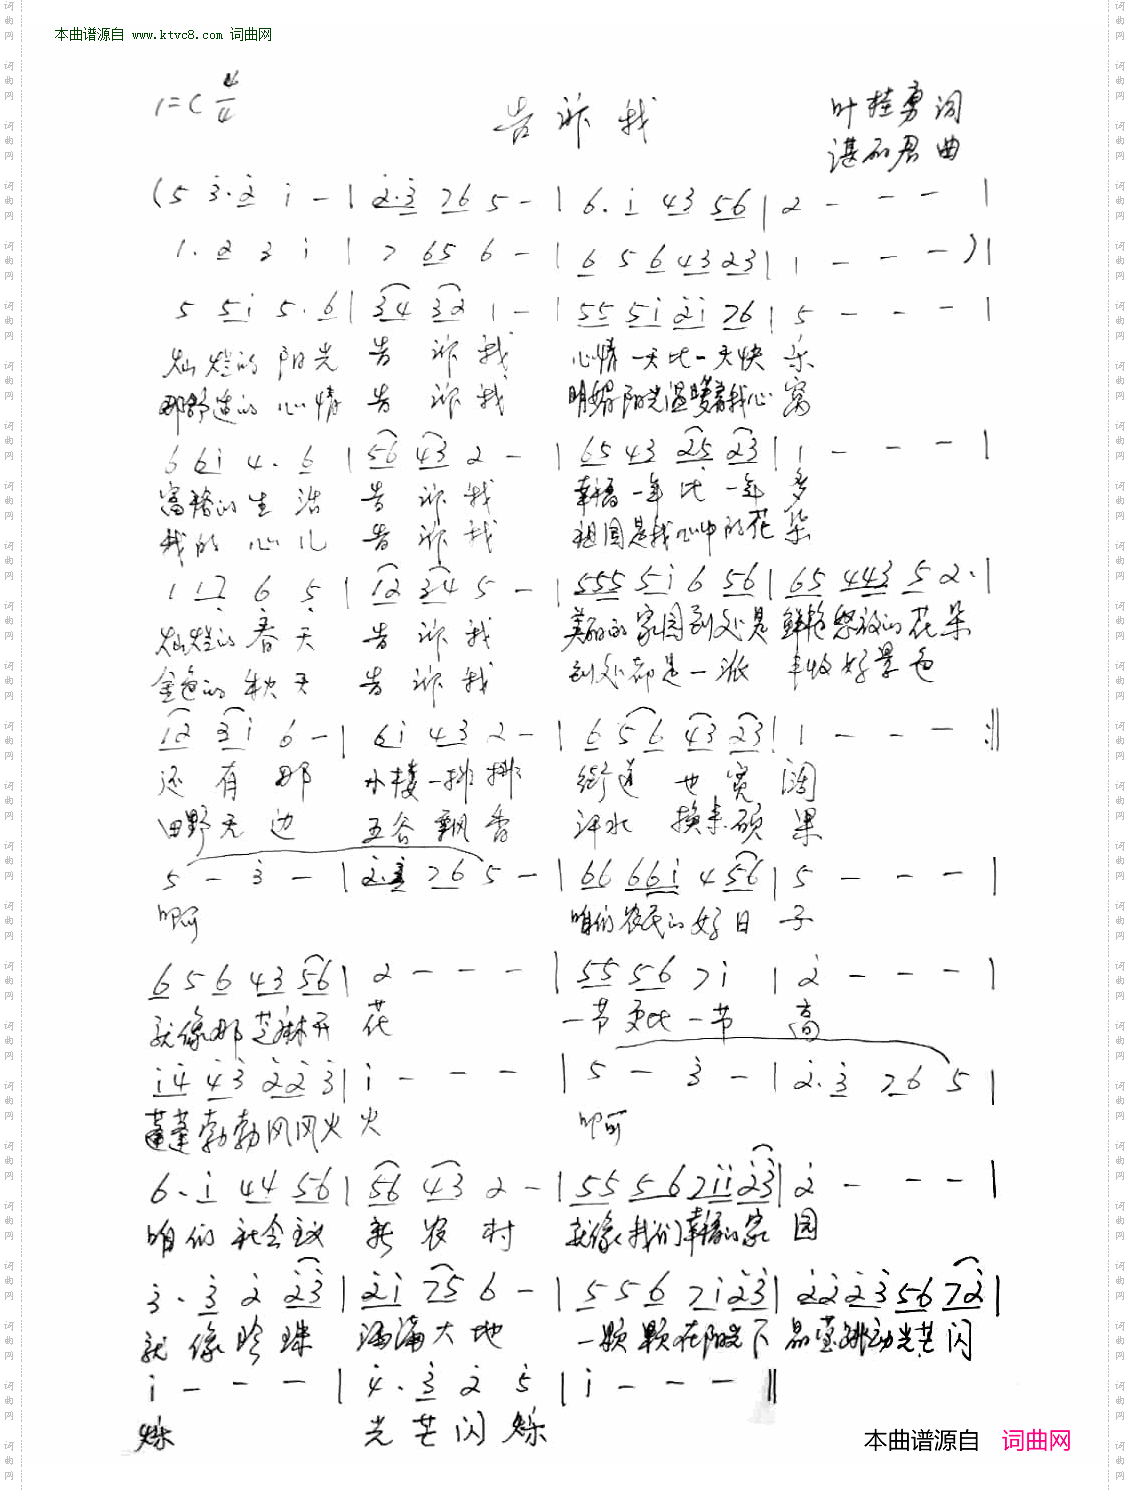 本曲谱源自 www.ktvc8.com 词曲网
1=C 4/4
告诉我
叶桂勇 词
谌 君 曲
(5 3·2 i - | 2·3 76 5 - | 6·i 43 56 | 2 - - - |
1·2 3 i | 7 65 6 - | 6 5 6 43 23 | 1 - - - )|
5 5i 5·6 | 34 32 1 - | 55 5i 2i 76 | 5 - - - |
灿烂的 阳光 告诉我 心情一天比一天快乐
那舒适的心情 告诉我 明媚阳光温暖着我心窝
6 6i 4·6 | 56 43 2 - | 65 43 25 23 | 1 - - - |
富裕的生活 告诉我 幸福一年比一年多
我的心儿 告诉我 祖国是我心中的花朵
1 17 6 5 | 12 34 5 - | 555 5i 6 56 | 65 443 5 2·|
灿烂的春天 告诉我 美丽的家园到处是 鲜艳怒放的花朵
金色的秋天 告诉我 到处都是一派 丰收好景色
12 3i 6 - | 6i 43 2 - | 6 5 6 43 23 | 1 - - - :||
还有那 小楼一排排 街道也宽阔
田野无边 五谷飘香 汗水换来硕果
5 - 3 - | 2·3 76 5 - | 66 66i 4 56 | 5 - - - |
啊 咱们农民的好日子
6 5 6 43 56 | 2 - - - | 55 56 7 i | 2 - - - |
就像那芝麻开花 一节更比一节高
i4 43 22 3 | i - - - | 5 - 3 - | 2·3 76 5 |
蓬蓬勃勃风风火火 啊
6·i 44 56 | 56 43 2 - | 55 56 7ii 23 | 2 - - - |
咱们社会主义 新农村 就像我们幸福的家园
3·3 2 23 | 2i 75 6 - | 5 5 6 7i 23 | 22 23 56 72 |
就像珍珠 洒满大地 一颗颗在阳光下 晶莹跳动光芒闪
i - - - | 4·3 2 5 | i - - - ||
烁 光芒闪烁
本曲谱源自 词曲网